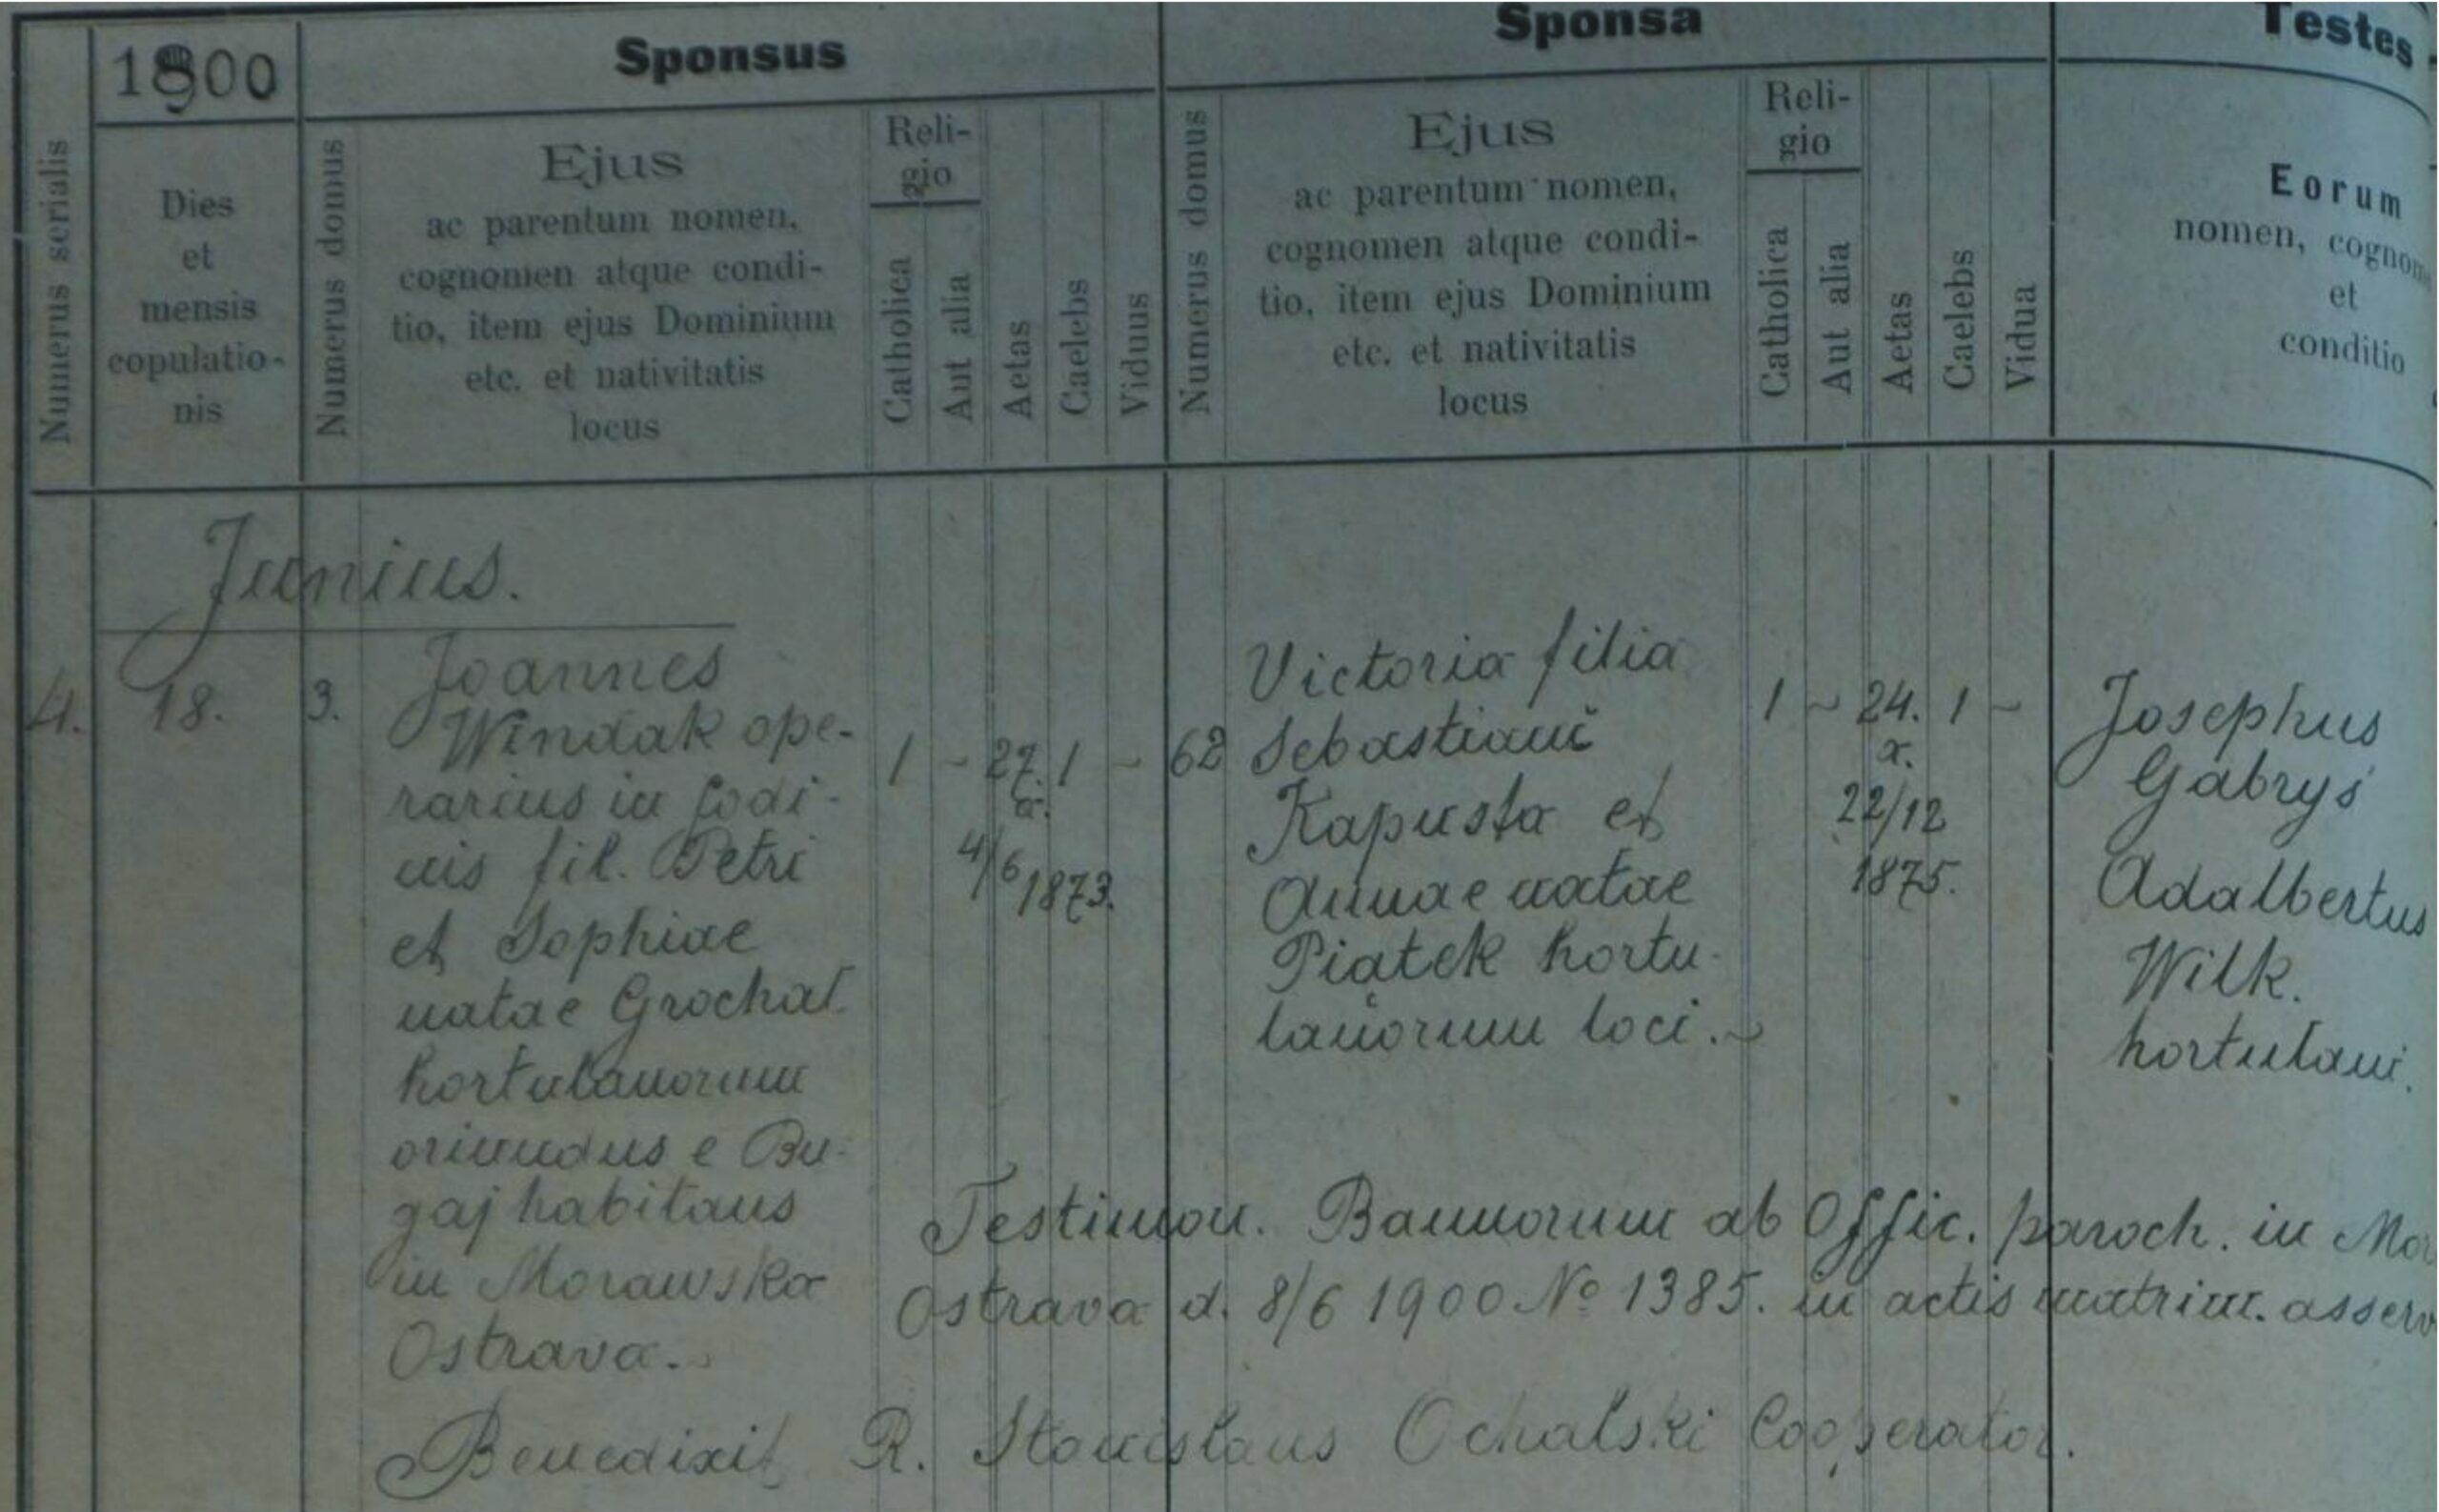 1900
Sponsus
Sponsa
Testes
Numerus serialis
Dies
et
mensis
copulatio-
nis
Numerus domus
Ejus
ac parentum nomen,
cognomen atque condi-
tio, item ejus Dominium
etc. et nativitatis
locus
Reli-
gio
Catholica
Aut alia
Aetas
Caelebs
Viduus
Numerus domus
Ejus
ac parentum nomen,
cognomen atque condi-
tio, item ejus Dominium
etc. et nativitatis
locus
Reli-
gio
Catholica
Aut alia
Aetas
Caelebs
Vidua
Eorum
nomen, cognom
et
conditio
Junius.
4. 18. 3.
Joannes
Windak ope-
rarius in fodi-
nis fil. Petri
et Sophiae
natae Grochal
hortulanorum
oriundus e Bu-
gaj habitans
in Morawska
Ostrava.
1 - 27. 1 -
a.
4/6 1873.
62
Victoria filia
Sebastiani
Kapusta et
Annae natae
Piatek hortu-
lanorum loci.
1 - 24. 1 -
a.
22/12
1875.
Josephus
Gabryś
Adalbertus
Wilk.
hortulani.
Testimon. Bannorum ab Offic. paroch. in Mor
Ostrava d. 8/6 1900 No 1385. in actis matrim. asserv
Benedixit R. Stanislaus Ochalski Cooperator.